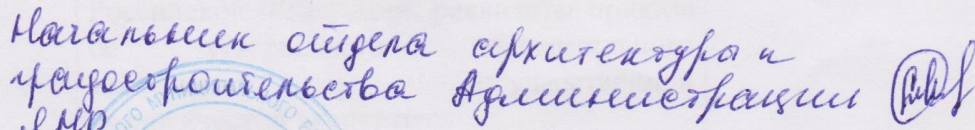 Начальник отдела архитектура и
градостроительства Администрации
ЯМР